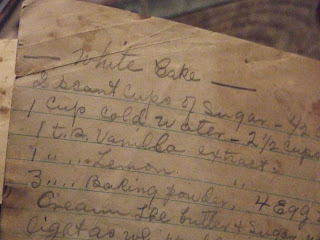 — White Cake —
2 scant cups of Sugar - 1/2 c
1 Cup cold water - 2 1/2 cups
1 t.s. Vanilla extract.
1 " " Lemon "
3 " " Baking powder, 4 Egg
Cream the butter & Sugar
light as